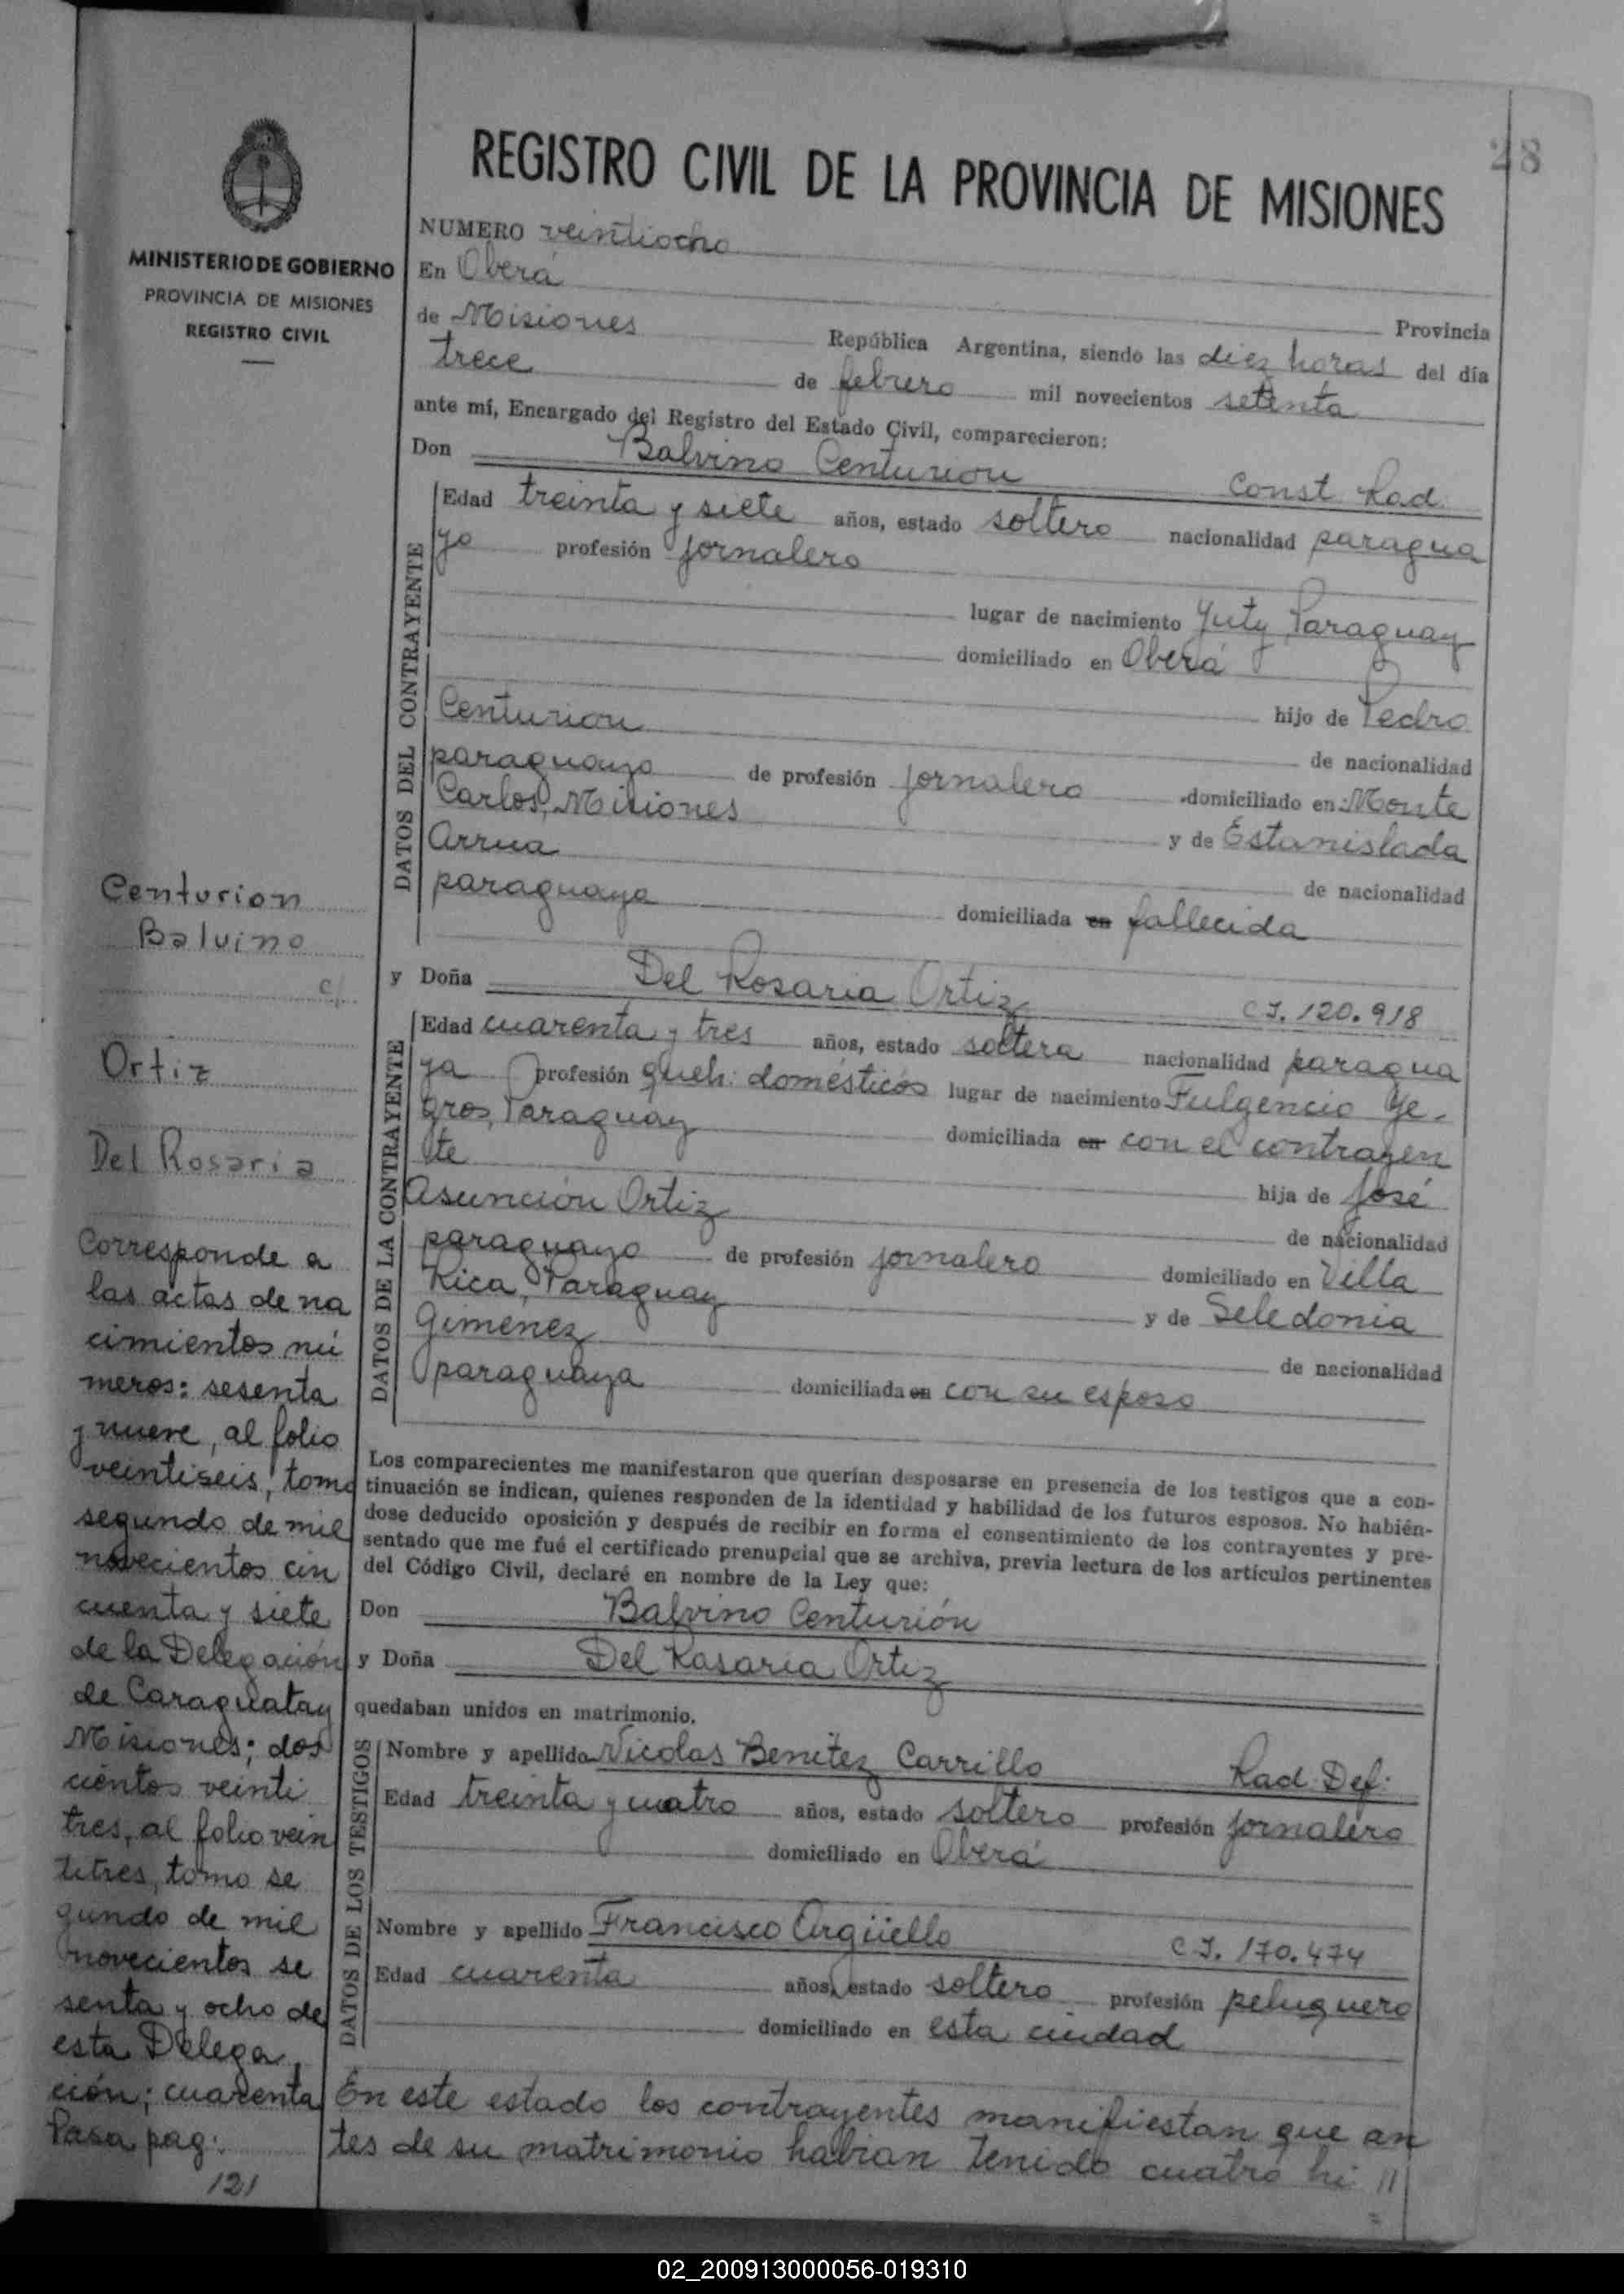 28
REGISTRO CIVIL DE LA PROVINCIA DE MISIONES
MINISTERIO DE GOBIERNO
PROVINCIA DE MISIONES
REGISTRO CIVIL
NUMERO veintiocho
En Oberá Provincia
de Misiones República Argentina, siendo las diez horas del día
trece de febrero mil novecientos setenta
ante mí, Encargado del Registro del Estado Civil, comparecieron:
Don Balvino Centurion Const. Rad.
DATOS DEL CONTRAYENTE
Edad treinta y siete años, estado soltero nacionalidad paragua
yo profesión jornalero
lugar de nacimiento Yuty, Paraguay
domiciliado en Oberá
hijo de Pedro
Centurion de nacionalidad
paraguayo de profesión jornalero domiciliado en Monte
Carlos, Misiones y de Estanislada
Arrua de nacionalidad
paraguaya domiciliada en fallecida
y Doña Del Rosaria Ortiz C.I. 120.918
DATOS DE LA CONTRAYENTE
Edad cuarenta y tres años, estado soltera nacionalidad paragua
ya profesión queh: domésticos lugar de nacimiento Fulgencio Ye-
gros, Paraguay domiciliada en con el contrayen
te hija de José
Asunción Ortiz de nacionalidad
paraguayo de profesión jornalero domiciliado en Villa
Rica, Paraguay y de Seledonia
Gimenez de nacionalidad
paraguaya domiciliada en con su esposo
Los comparecientes me manifestaron que querían desposarse en presencia de los testigos que a con-
tinuación se indican, quienes responden de la identidad y habilidad de los futuros esposos. No habién-
dose deducido oposición y después de recibir en forma el consentimiento de los contrayentes y pre-
sentado que me fué el certificado prenupcial que se archiva, previa lectura de los artículos pertinentes
del Código Civil, declaré en nombre de la Ley que:
Don Balvino Centurión
y Doña Del Rosaria Ortiz
quedaban unidos en matrimonio.
DATOS DE LOS TESTIGOS
Nombre y apellido Nicolas Benítez Carrillo Rad: Def:
Edad treinta y cuatro años, estado soltero profesión jornalero
domiciliado en Oberá
Nombre y apellido Francisco Argüello C.I. 170.474
Edad cuarenta años, estado soltero profesión peluquero
domiciliado en esta ciudad
En este estado los contrayentes manifiestan que an
tes de su matrimonio habian tenido cuatro hi //
Centurion
Balvino
c/
Ortiz
Del Rosaria
Corresponde a
las actas de na
cimientos nú
meros: sesenta
y nueve, al folio
veintiseis, tomo
segundo de mil
novecientos cin
cuenta y siete
de la Delegación
de Caraguatay
Misiones; dos
cientos veinti
tres, al folio vein
titres, tomo se
gundo de mil
novecientos se
senta y ocho de
esta Delega
ción; cuarenta
Pasa pag:
121
02_200913000056-019310